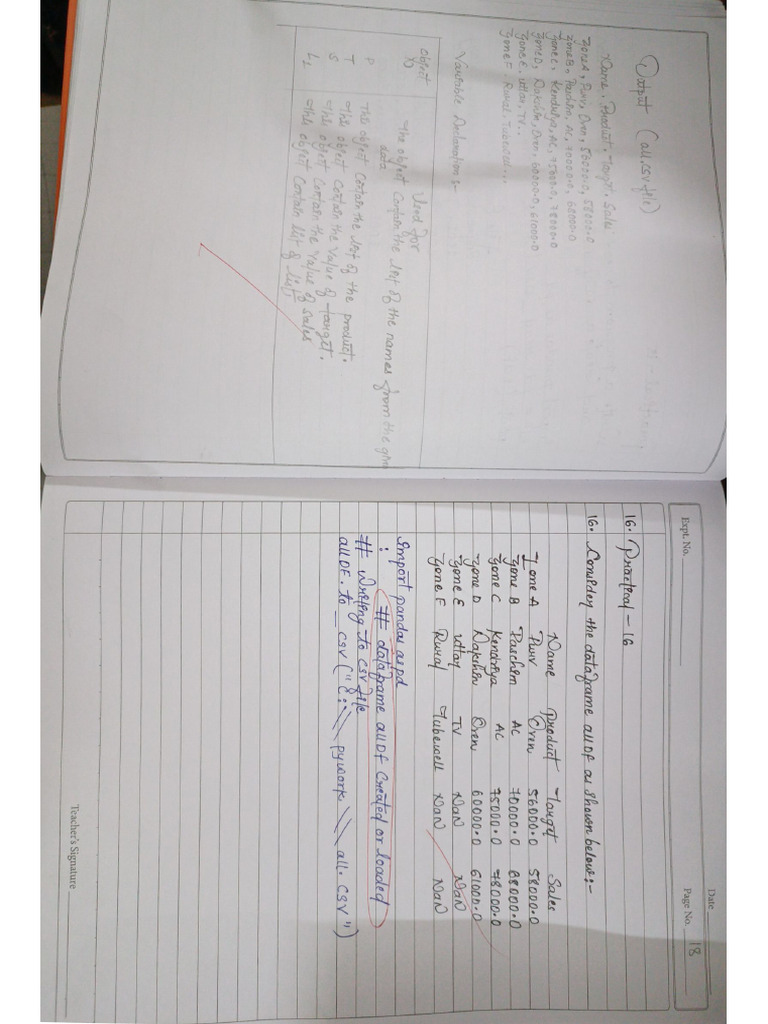 Output (all.csv file)
Name, Product, Target, Sales
zoneA, Purv, Oven, 56000.0, 58000.0
zoneB, Paschim, AC, 70000.0, 68000.0
zoneC, Kendriya, AC, 75000.0, 78000.0
zoneD, Dakshin, Oven, 60000.0, 61000.0
zoneE, Uttar, TV,,
zoneF, Rural, Tubewell,,
Variable Declaration:-
Object Used for
The object Contain the list of the names from the given data
P The object Contain the list of the product.
T The object Contain the value of target.
S The object Contain the value of sales
The object Contain list of lists
Date
Expt. No. Page No. 18
16. Practical - 16
16. Consider the dataframe allDF as shown below:-
Name Product Target Sales
Zone A Purv Oven 56000.0 58000.0
Zone B Paschim AC 70000.0 68000.0
zone C Kendriya AC 75000.0 78000.0
zone D Dakshin Oven 60000.0 61000.0
zone E Uttar TV NaN NaN
zone F Rural Tubewell NaN NaN
Import pandas as pd
: # dataframe allDF Created or loaded
# Writing to CSV file
allDF.to_csv("E:\\pywork\\all.csv")
Teacher's Signature